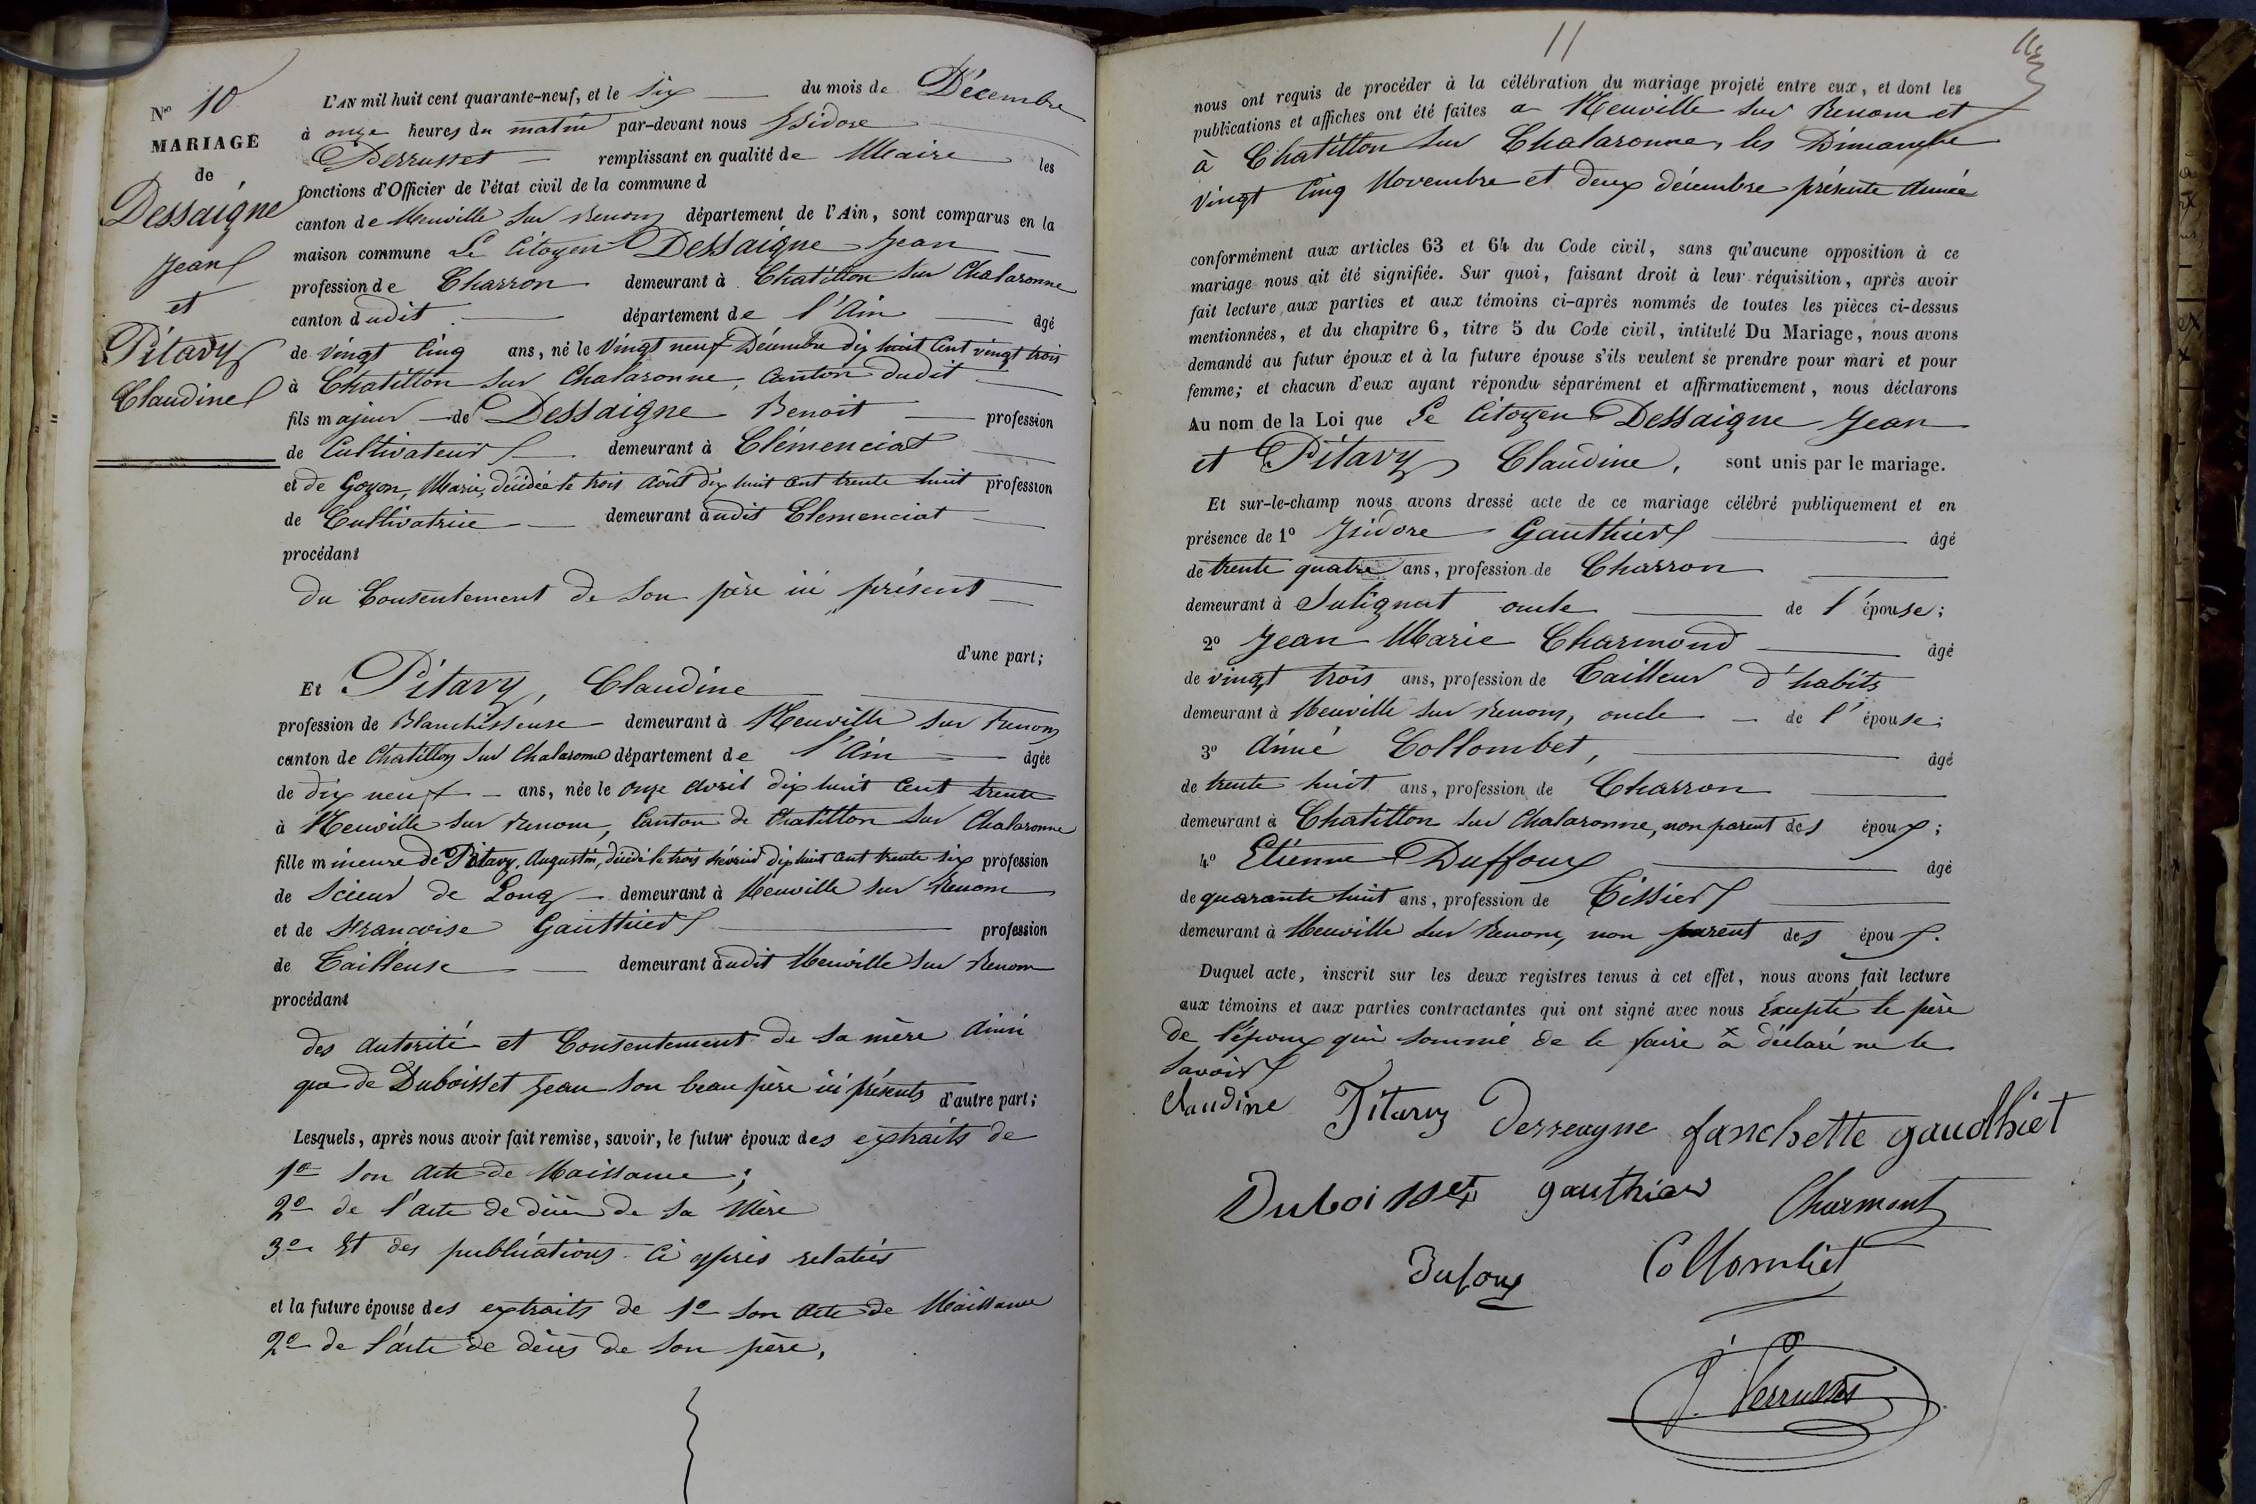 N° 10
MARIAGE
de
Dessaigne
Jean
et
Pitavy
Claudine
L'AN mil huit cent quarante-neuf, et le six du mois de Décembre
à onze heures du matin par-devant nous Isidore
Perrusset remplissant en qualité de Maire les
fonctions d'Officier de l'état civil de la commune d
canton de Neuville sur Renom département de l'Ain, sont comparus en la
maison commune Le Citoyen Dessaigne Jean
profession de Charron demeurant à Chatillon sur Chalaronne
canton dudit département de l'Ain âgé
de vingt cinq ans, né le vingt neuf Décembre dix huit cent vingt trois
à Chatillon sur Chalaronne, Canton dudit
fils majeur de Dessaigne Benoit profession
de Cultivateur demeurant à Clémenciat
et de Goyon, Marie, décédée le trois Août dix huit cent trente huit profession
de Cultivatrice demeurant audit Clémenciat
procédant
du Consentement de son père ici présent
d'une part;
Et Pitavy, Claudine
profession de Blanchisseuse demeurant à Neuville sur Renom
canton de Chatillon sur Chalaronne département de l'Ain âgée
de dix neuf ans, née le onze Avril dix huit cent trente
à Neuville sur Renom, Canton de Chatillon sur Chalaronne
fille mineure de Pitavy, Augustin, décédé le trois Février dix huit cent trente six profession
de Scieur de Long demeurant à Neuville sur Renom
et de Francoise Gauthier profession
de Tailleuse demeurant audit Neuville sur Renom
procédant
des autorité et Consentement de sa mère Ainsi
que de Duboisset Jean son beau père ici présents d'autre part;
Lesquels, après nous avoir fait remise, savoir, le futur époux des extraits de
1° son acte de Naissance;
2° de l'acte de décès de sa Mère
3° Et des publications ci après relatées
et la future épouse des extraits de 1° son Acte de Naissance
2° de l'acte de décès de son père,
11
nous ont requis de procéder à la célébration du mariage projeté entre eux, et dont les
publications et affiches ont été faites a Neuville sur Renom et
à Chatillon sur Chalaronne, les Dimanche
vingt cinq Novembre et deux décembre présente Année
conformément aux articles 63 et 64 du Code civil, sans qu'aucune opposition à ce
mariage nous ait été signifiée. Sur quoi, faisant droit à leur réquisition, après avoir
fait lecture aux parties et aux témoins ci-après nommés de toutes les pièces ci-dessus
mentionnées, et du chapitre 6, titre 5 du Code civil, intitulé Du Mariage, nous avons
demandé au futur époux et à la future épouse s'ils veulent se prendre pour mari et pour
femme; et chacun d'eux ayant répondu séparément et affirmativement, nous déclarons
Au nom de la Loi que Le Citoyen Dessaigne Jean
et Pitavy Claudine, sont unis par le mariage.
Et sur-le-champ nous avons dressé acte de ce mariage célébré publiquement et en
présence de 1° Isidore Gauthier âgé
de trente quatre ans, profession de Charron
demeurant à Sulignat oncle de l'épouse;
2° Jean Marie Charmond âgé
de vingt trois ans, profession de Tailleur d'habits
demeurant à Neuville sur Renom, oncle de l'épouse;
3° Aimé Collombet, âgé
de trente huit ans, profession de Charron
demeurant à Chatillon sur Chalaronne, non parent des époux;
4° Etienne Duffoux âgé
de quarante huit ans, profession de Tissier
demeurant à Neuville sur Renom, non parent des époux.
Duquel acte, inscrit sur les deux registres tenus à cet effet, nous avons fait lecture
aux témoins et aux parties contractantes qui ont signé avec nous Excepté le père
de l'époux qui sommé de le faire a déclaré ne le
savoir
Claudine Pitavy Dessaygne fanchette gaudhiet
Duboisset gauthier Charmont
Dufoux Collombet
J. Perrusset